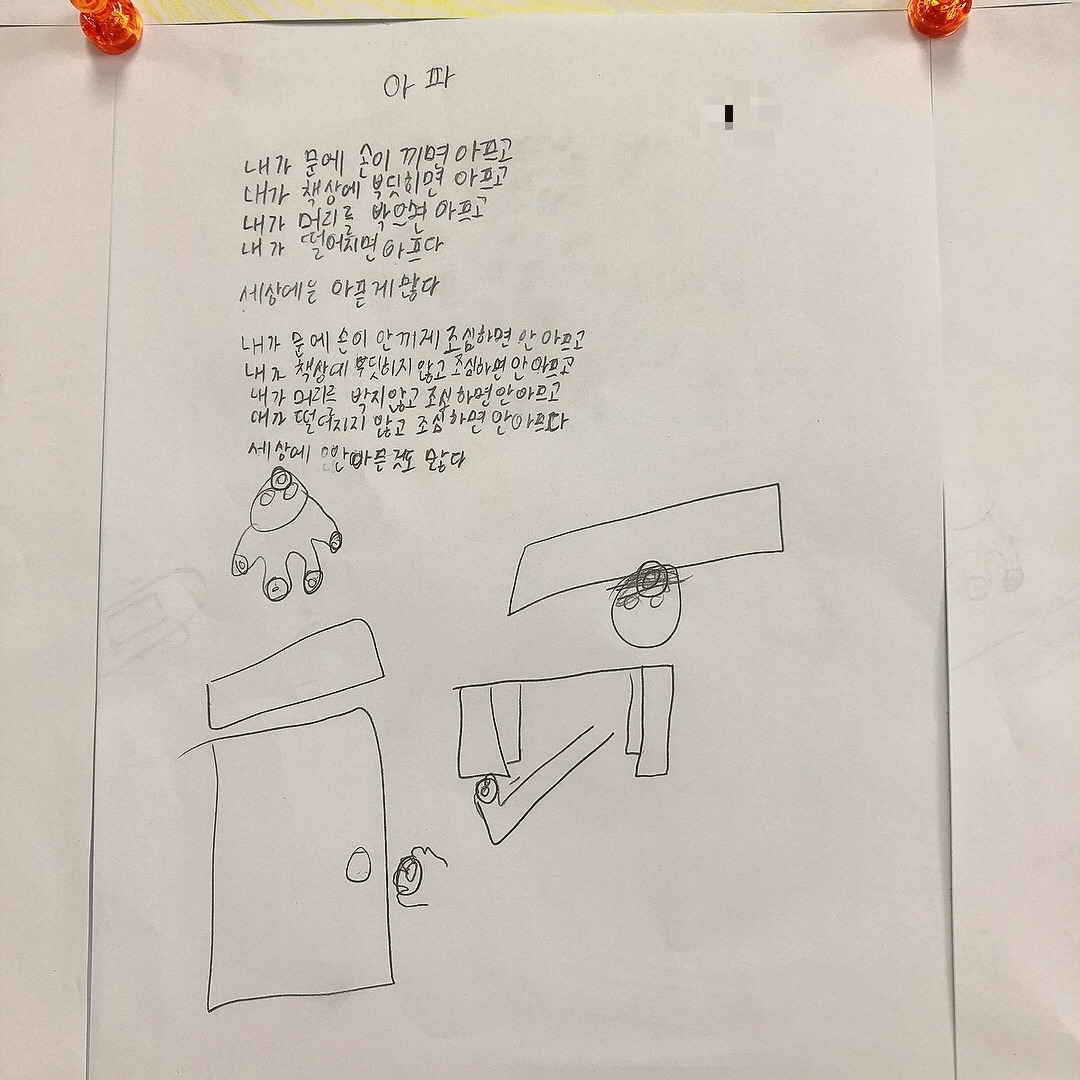 아파
내가 문에 손이 끼면 아프고
내가 책상에 부딧히면 아프고
내가 머리를 박으면 아프고
내가 떨어지면 아프다
세상에는 아픈게 많다
내가 문에 손이 안끼게 조심하면 안 아프고
내가 책상에 부딧히지 않고 조심하면 안 아프고
내가 머리르 박지않고 조심하면 안아프고
내가 떨어지지 않고 조심하면 안아프다
세상에 안아픈것도 많다